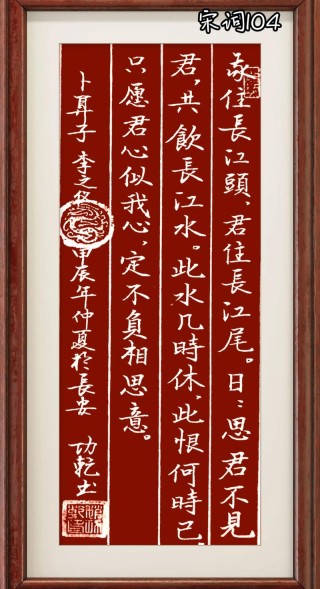 宋词104
我住長江頭、君住長江尾。日〻思君不見
君，共飲長江水。此水几時休，此恨何時已
只愿君心似我心，定不負相思意。
卜算子 李之仪 甲辰年仲夏於長安 功乾书